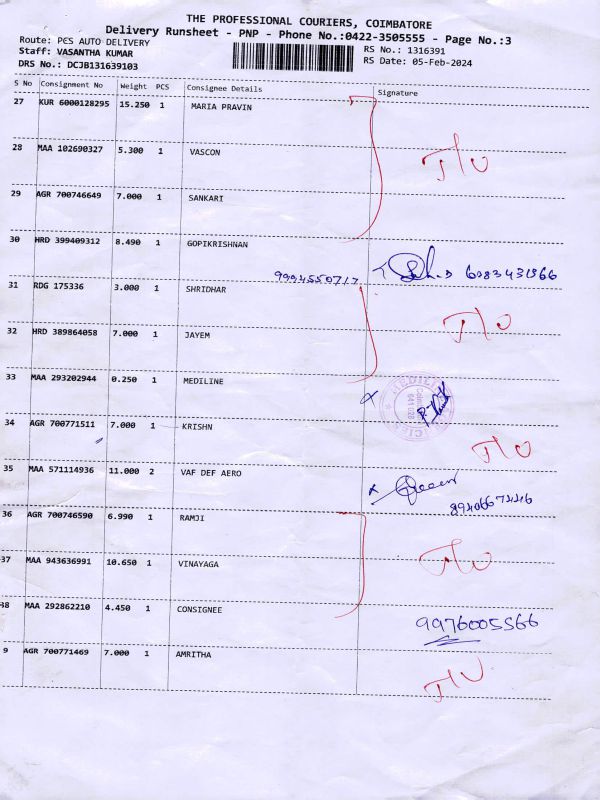 THE PROFESSIONAL COURIERS, COIMBATORE
Delivery Runsheet - PNP - Phone No.:0422-3505555 - Page No.:3
Route: PCS AUTO DELIVERY RS No.: 1316391
Staff: VASANTHA KUMAR RS Date: 05-Feb-2024
DRS No.: DCJB131639103
S No Consignment No Weight PCS Consignee Details Signature
27 KUR 6000128295 15.250 1 MARIA PRAVIN
28 MAA 102690327 5.300 1 VASCON
29 AGR 700746649 7.000 1 SANKARI
30 HRD 399409312 8.490 1 GOPIKRISHNAN
9994550717
31 RDG 175336 3.000 1 SHRIDHAR
32 HRD 389864058 7.000 1 JAYEM
33 MAA 293202944 0.250 1 MEDILINE
34 AGR 700771511 7.000 1 KRISHN
35 MAA 571114936 11.000 2 VAF DEF AERO
36 AGR 700746590 6.990 1 RAMJI
37 MAA 943636991 10.650 1 VINAYAGA
38 MAA 292862210 4.450 1 CONSIGNEE
9976005566
9 AGR 700771469 7.000 1 AMRITHA